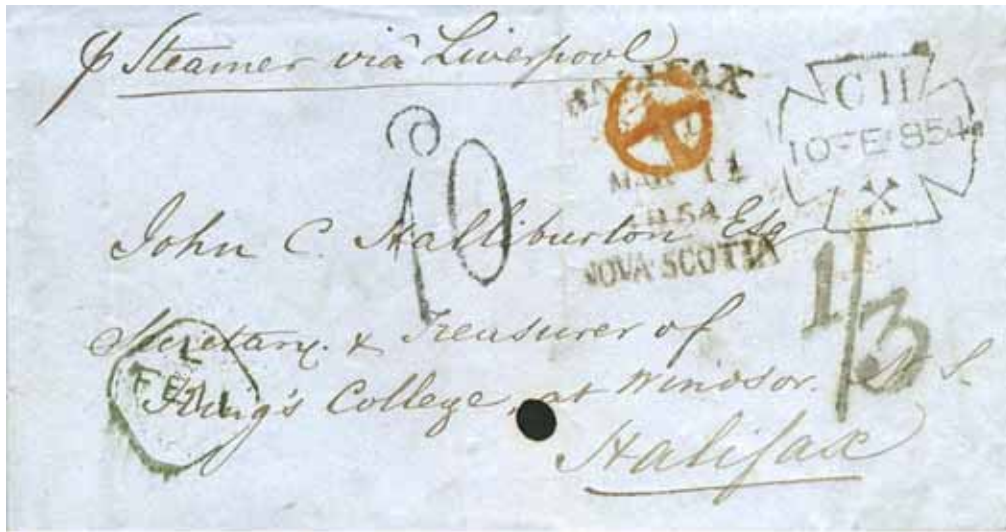 ⅌ Steamer via Liverpool
HALIFAX
MAR 14
1854
NOVA·SCOTIA
C H
10 FE 1854
X
10
1/3
John C. Halliburton Esq
Secretary & Treasurer of
King's College, at Windsor. N S.
Halifax
L
FE